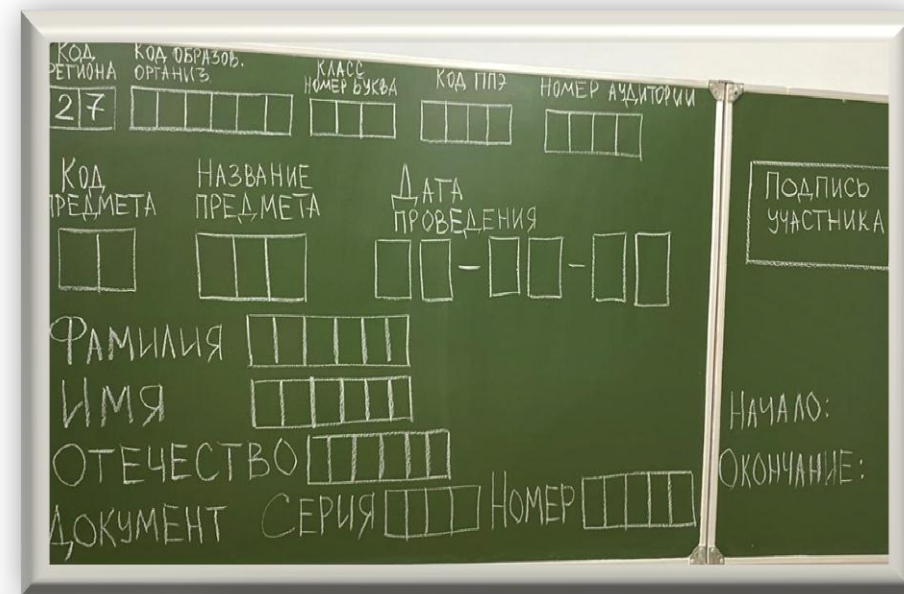 КОД РЕГИОНА
27
КОД ОБРАЗОВ. ОРГАНИЗ.
КЛАСС
НОМЕР БУКВА
КОД ППЭ
НОМЕР АУДИТОРИИ
КОД ПРЕДМЕТА
НАЗВАНИЕ ПРЕДМЕТА
ДАТА ПРОВЕДЕНИЯ
- -
ФАМИЛИЯ
ИМЯ
ОТЕЧЕСТВО
ДОКУМЕНТ СЕРИЯ НОМЕР
ПОДПИСЬ
УЧАСТНИКА
НАЧАЛО:
ОКОНЧАНИЕ: